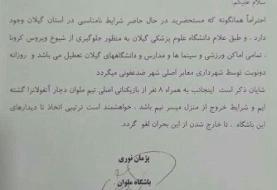 سلام علیکم؛
احتراماً همانگونه که مستحضرید در حال حاضر شرایط نامناسبی در استان گیلان وجود
دارد . و طبق اعلام دانشگاه علوم پزشکی گیلان به منظور جلوگیری از شیوع ویروس کرونا
، تمامی اماکن ورزشی و سینما ها و مدارس و دانشگاههای گیلان تعطیل می باشد و روزانه
دونوبت توسط شهرداری معابر اصلی شهر ضدعفونی میگردد
شایان ذکر است اینجانب به همراه ۸ نفر از بازیکنانی اصلی تیم ملوان دچار آنفولانزا گشته
ایم و شرایط خروج از منزل میسر نیم باشد . خواهشمند است ترتیبی اتخاذ تا دیدارهای
این باشگاه . تا خارج شدن از این بحران لغو گردد.
پژمان نوری
باشگاه ملوان